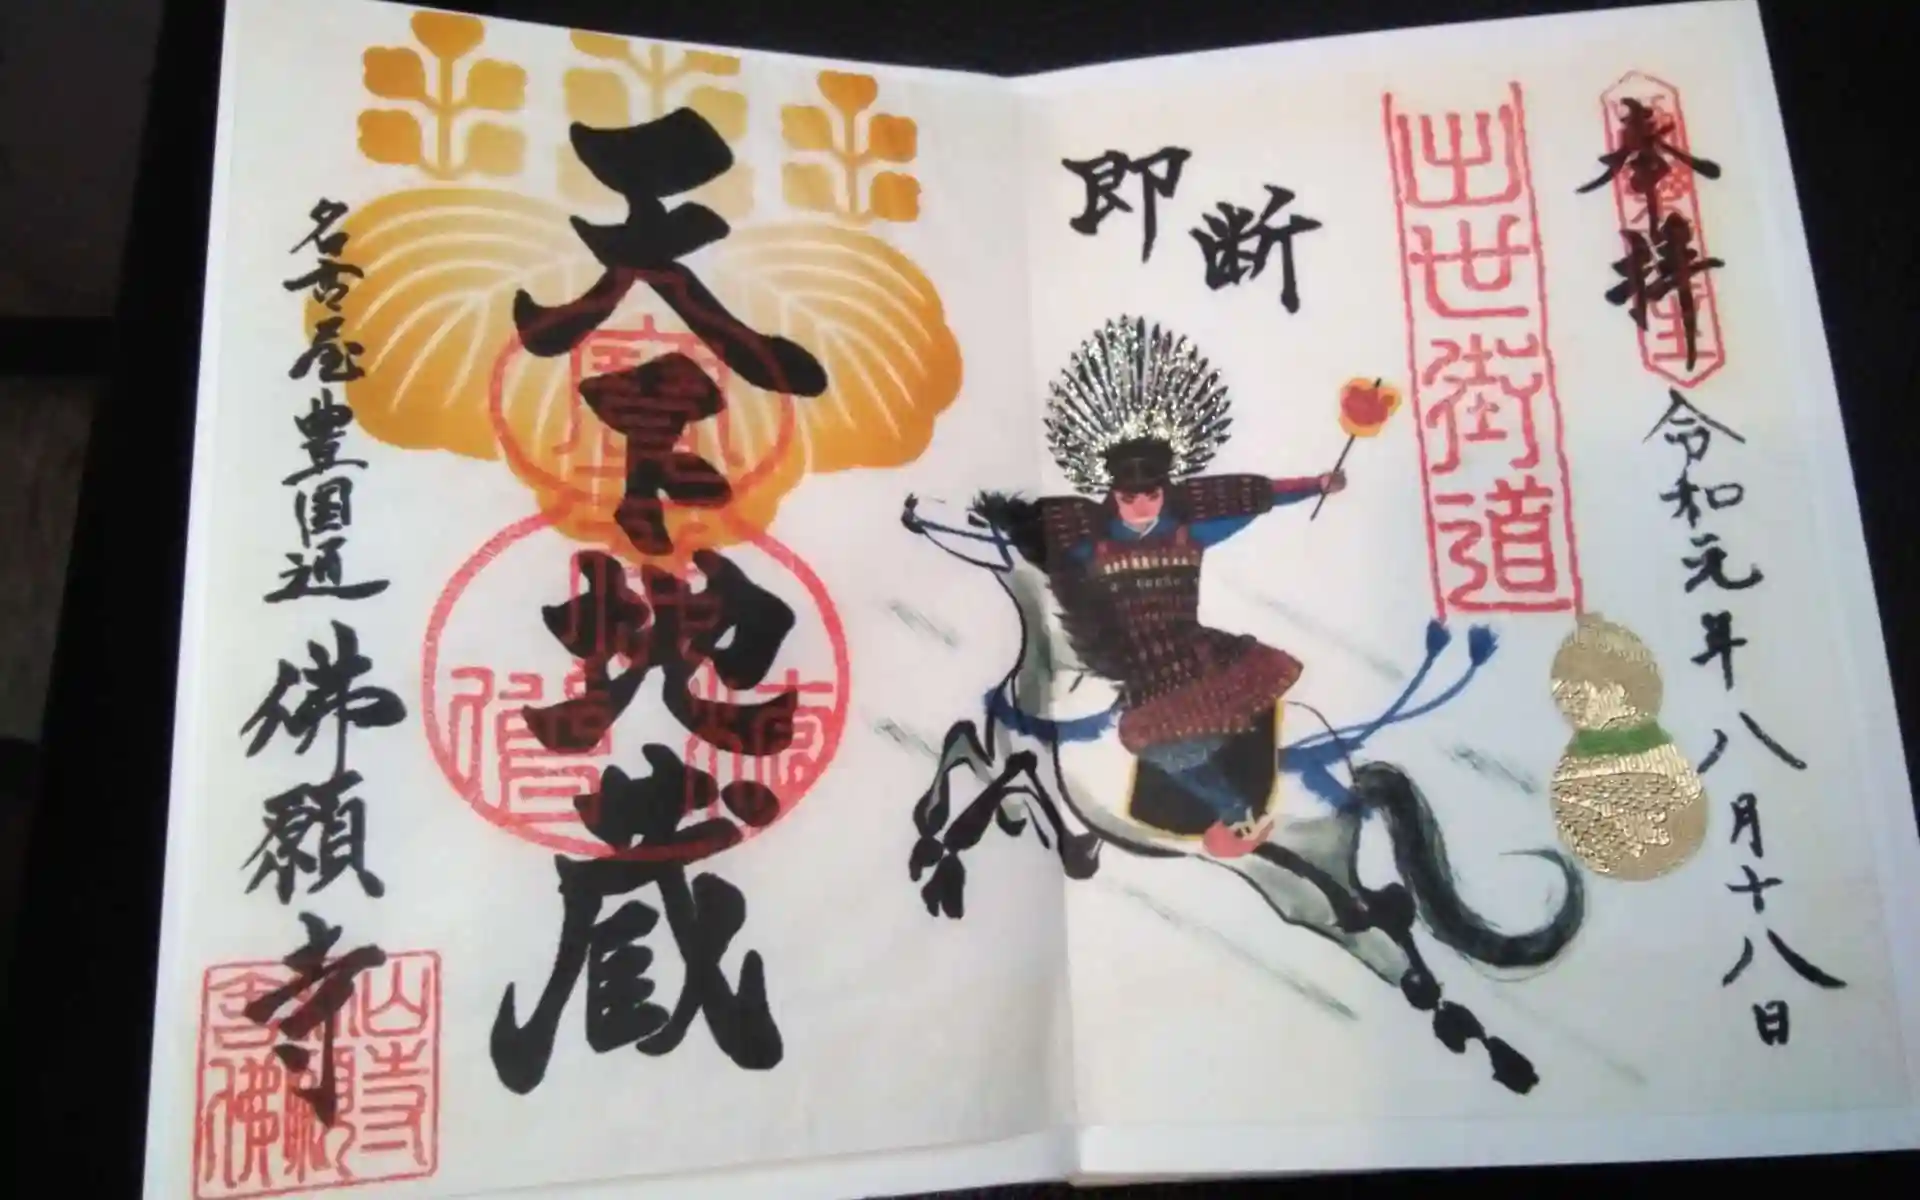 奉拝
令和元年八月十八日
出世街道
即断
天下地蔵
名古屋豊国通 佛願寺